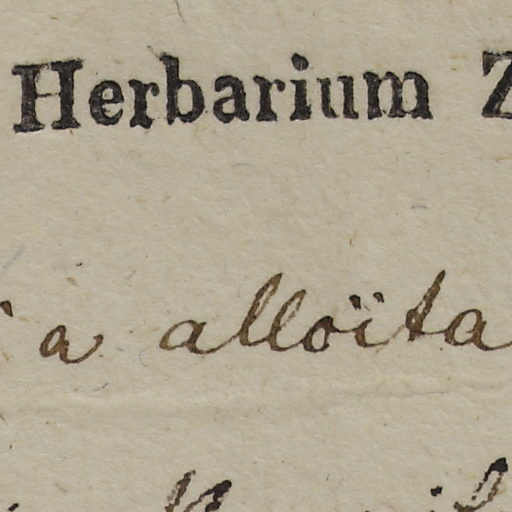 Herbarium Z
a alloïta